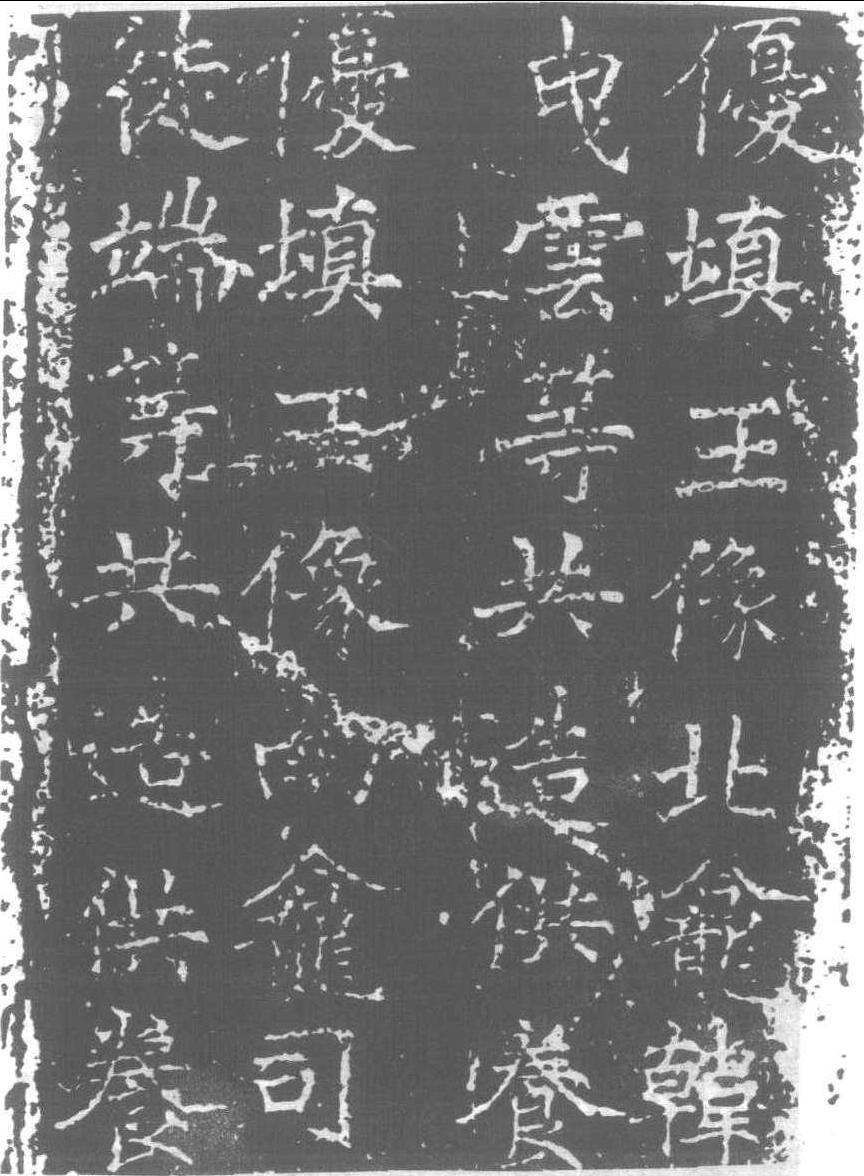 優填王像北龕韓
曳雲等共造供養
優填王像南龕司
徒端等共造供養